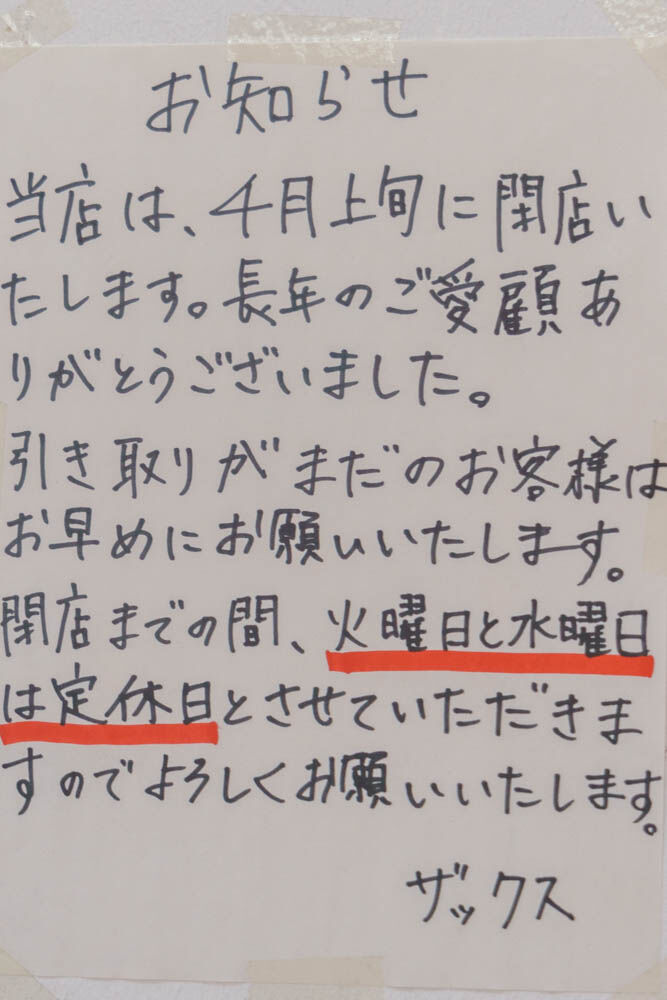 お知らせ
当店は、4月上旬に閉店い
たします。長年のご愛顧あ
りがとうございました。
引き取りがまだのお客様は
お早めにお願いいたします。
閉店までの間、火曜日と水曜日
は定休日とさせていただきま
すのでよろしくお願いいたします。
ザックス